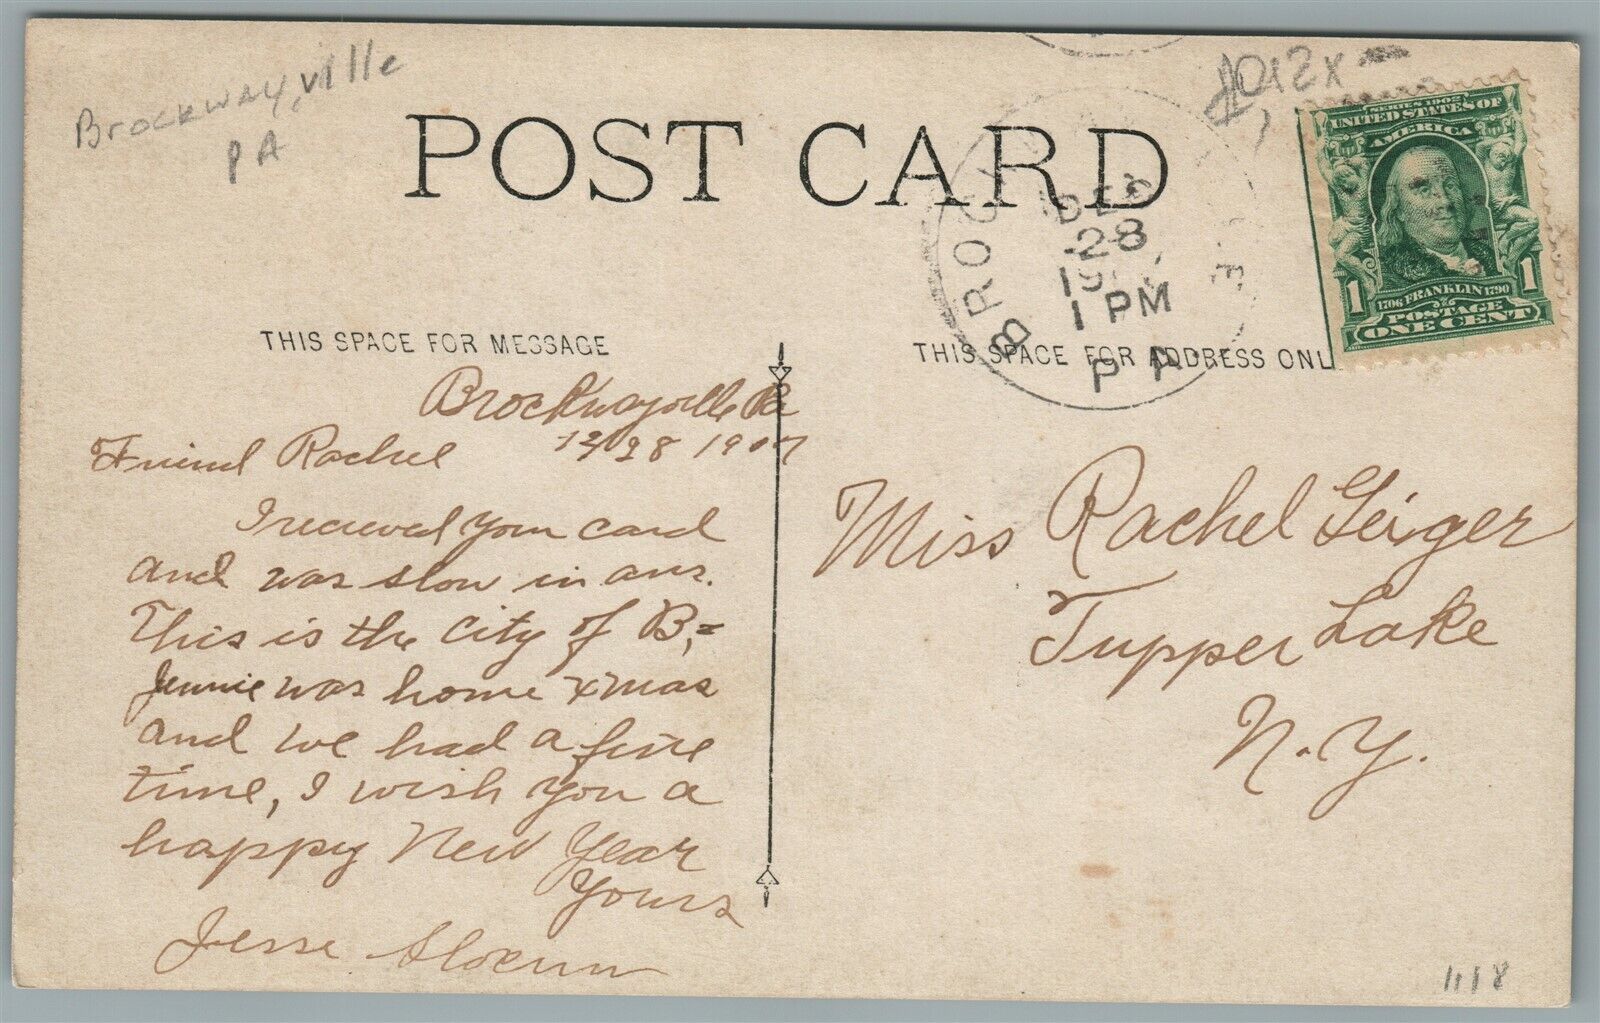 Brockwayville
PA
POST CARD
BROCK
DEC
28
1 PM
PA
SERIES 1902
UNITED STATES OF
AMERICA
1 1
1706 FRANKLIN 1790
POSTAGE
ONE CENT
THIS SPACE FOR MESSAGE
THIS SPACE FOR ADDRESS ONL
Brockwayville Pa
12/28 1907
Friend Rachel
I recieved your card
and was slow in ans.
This is the city of B,=
Jennie was home xmas
and we had a fine
time, I wish you a
happy New Year
Yours
Jesse Slocum
Miss Rachel Geiger
Tupper Lake
N.Y.
1118